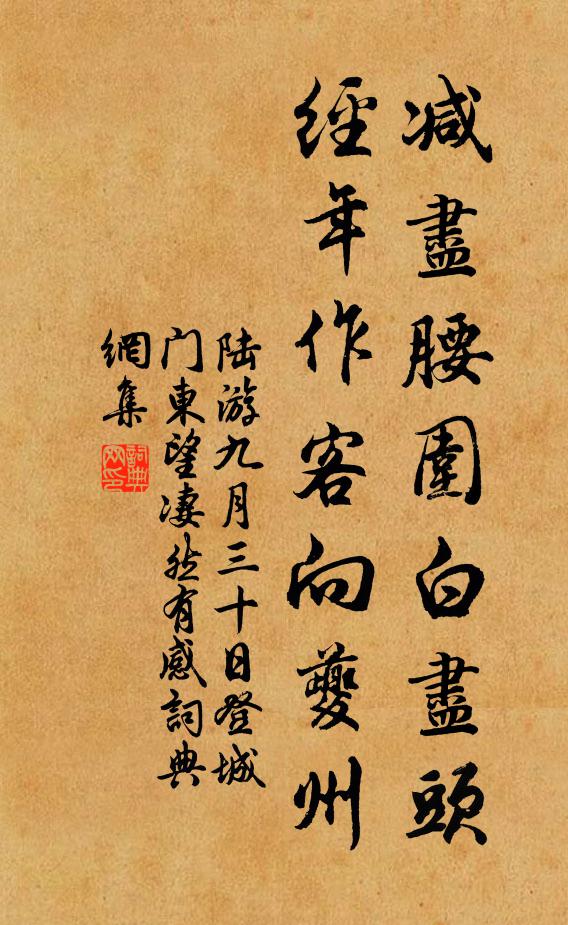 減盡腰圍白盡頭
經年作客向夔州
陆游九月三十日登城
门東望淒然有感詞典
網集
詞典
网印